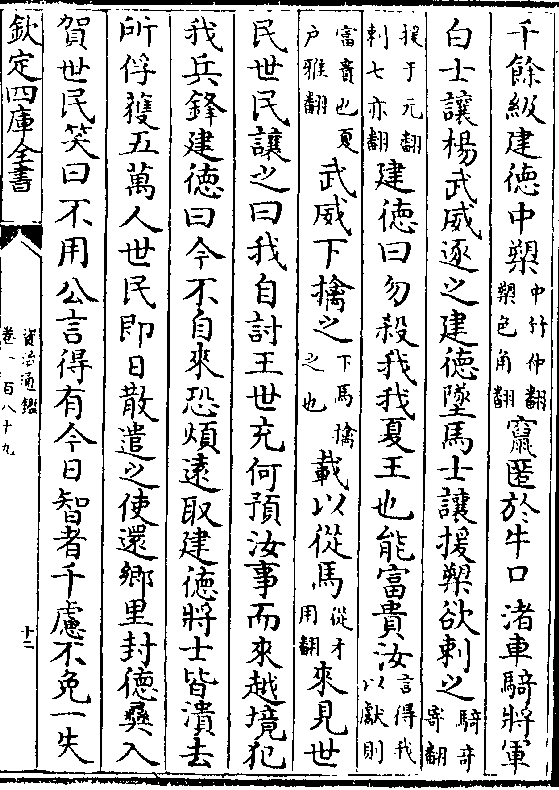 千餘級建德中槊中竹仲翻槊色角翻竄匿於牛口渚車騎將軍
白士讓楊武威逐之建德墜馬士讓援槊欲刺之騎奇寄翻
援于元翻刺七亦翻建德曰勿殺我我夏王也能富貴汝言得我以獻則
富貴也夏户雅翻武威下擒之下馬擒之也載以從馬從才用翻來見世
民世民讓之曰我自討王世充何預汝事而來越境犯
我兵鋒建德曰今不自來恐煩逺取建德將士皆潰去
所俘獲五萬人世民即日散遣之使還鄉里封德彝入
賀世民笑曰不用公言得有今日智者千慮不免一失
欽定四庫全書
資治通鑑
卷一百八十九
十二